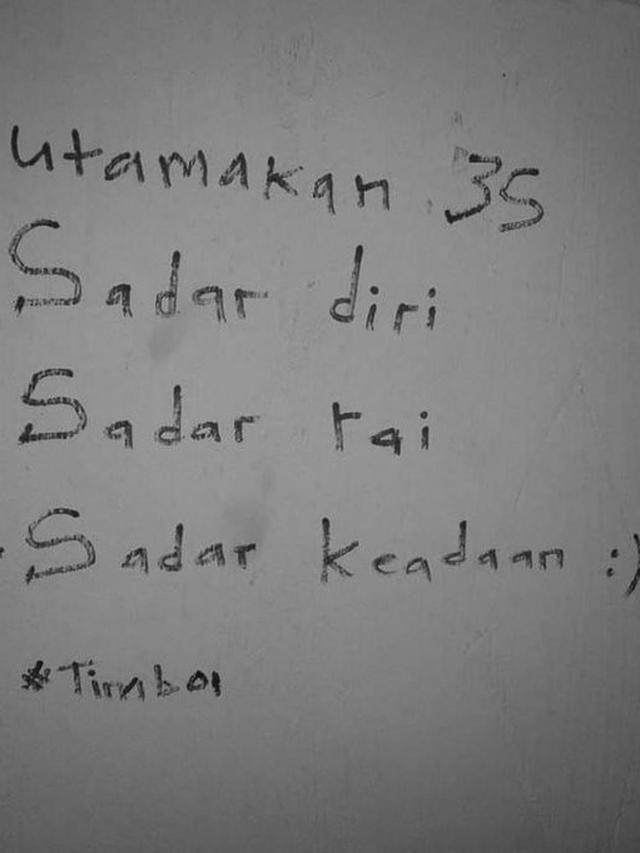 Utamakan 3S
Sadar diri
Sadar tai
Sadar keadaan :)